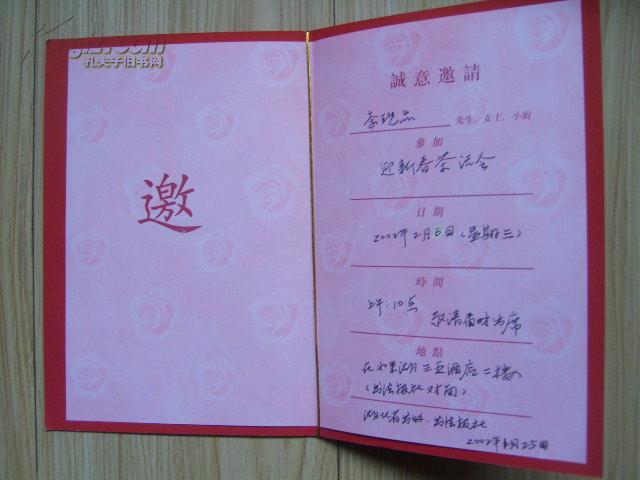 孔夫子旧书网
邀
誠意邀請
李 品 先生、女士、小姐
參加
迎新春茶话会
日期
2002年2月6日(星期三)
時間
上午:10点
敬请届时出席
地點
在水果湖三五酒店二楼
(书法报社对面)
湖北省书协·书法报社
2002年1月25日